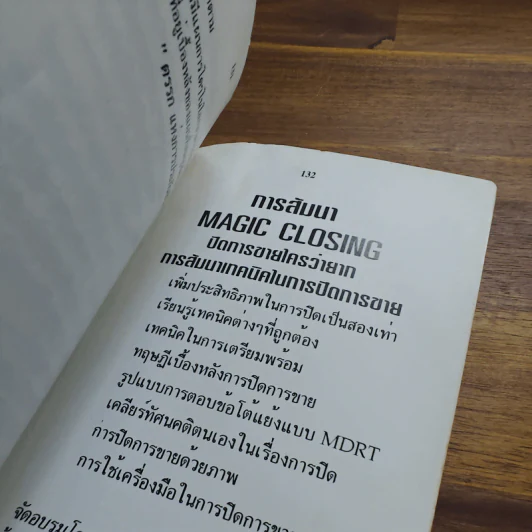 132
การสัมนา
MAGIC CLOSING
ปิดการขายใครว่ายาก
การสัมนาเทคนิคในการปิดการขาย
เพิ่มประสิทธิภาพในการปิดเป็นสองเท่า
เรียนรู้เทคนิคต่างๆที่ถูกต้อง
เทคนิคในการเตรียมพร้อม
ทฤษฎีเบื้องหลังการปิดการขาย
รูปแบบการตอบข้อโต้แย้งแบบ MDRT
เคลียร์ทัศนคติตนเองในเรื่องการปิด
การปิดการขายด้วยภาพ
การใช้เครื่องมือในการปิดการขา
จัดอบรมโ